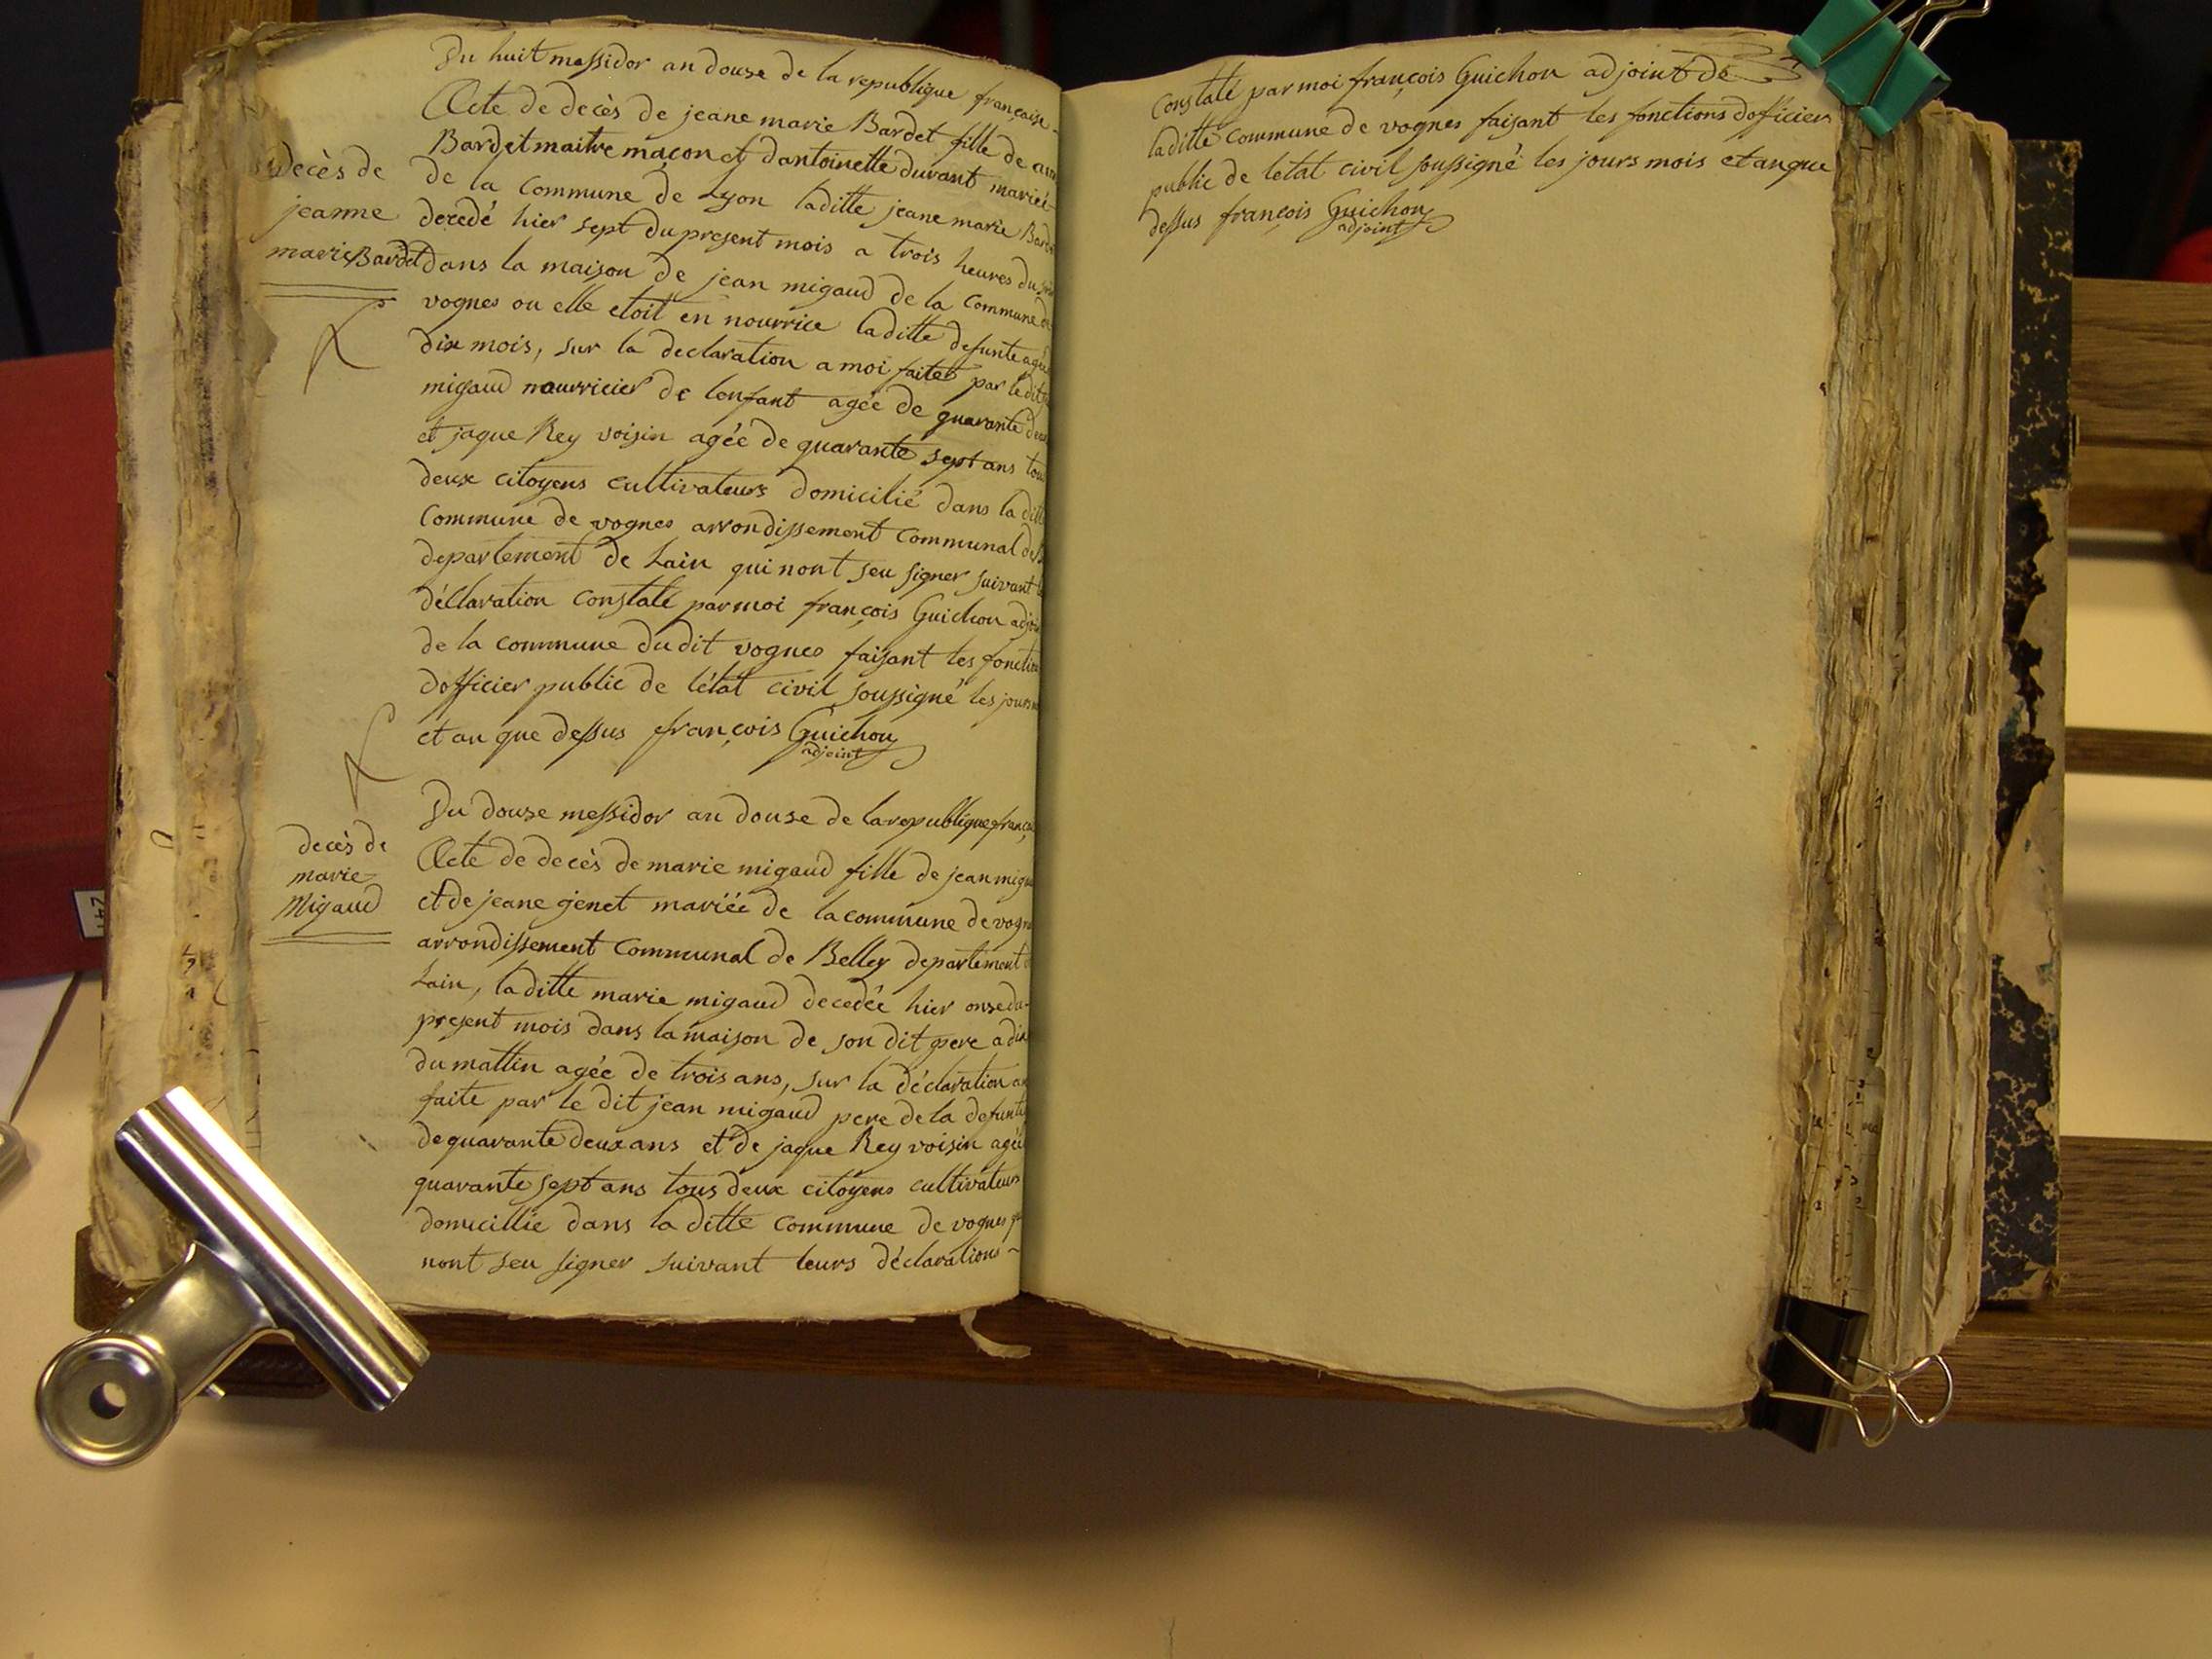 Du huit messidor an douse de la republique française
Acte de decès de jeane marie Bardet fille de
Bardet maitre maçon et dantoinette durant mariéé
decès de
de la Commune de Lyon laditte jeane marie
jeanne
decedé hier sept du present mois a trois heures du
marie Bardet
dans la maison de jean migaud de la Commune de
vognes ou elle etoit en nourrice laditte defunte agée
dix mois, sur la declaration a moi faites par ledit
migaud nourricier de lenfant agée de quarante deux
et jaque Rey voisin agée de quarante sept ans tous
deux citoyens cultivateurs domicilié dans la ditte
Commune de vognes arrondissement Communal de
departement de Lain qui nont seu signer suivant
déclaration constaté par moi françois Guichon adjoint
de la commune du dit vognes faisant les fonctions
dofficier public de létat civil soussigné les jours
et an que dessus françois Guichon
adjoint
Du douse messidor an douse de la republique française
decès de
marie
Migaud
Acte de decès de marie migaud fille de jean migaud
et de jeane genet mariéé de la commune de vognes
arrondissement Communal de Belley departement
Lain, laditte marie migaud decedée hier onse du
present mois dans la maison de son dit pere a dix
du mattin agée de trois ans, sur la déclaration a
faite par le dit jean migaud pere de la defunte
de quarante deux ans et de jaque Rey voisin agée
quarante sept ans tous deux citoyens cultivateurs
domicillie dans la ditte commune de vognes
nont seu signer suivant leurs déclarations
Constaté par moi françois Guichon adjoint de
laditte Commune de vognes faisant les fonctions dofficier
public de letat civil soussigné les jours mois et an que
dessus françois Guichon
adjoint
24